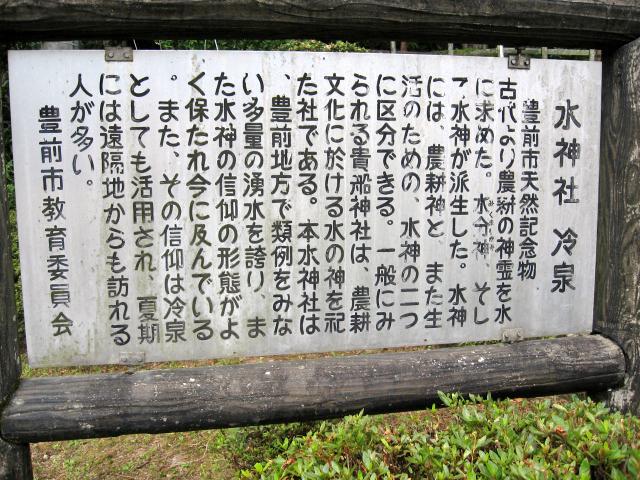 水神社 冷泉
豊前市天然記念物
古代より農耕の神霊を水
に求めた。水分神、そし
て水神が派生した。水神
には、農耕神と、また生
活のための、水神の二つ
に区分できる。一般にみ
られる貴船神社は、農耕
文化に於ける水の神を祀
た社である。本水神社は
、豊前地方で類例をみな
い多量の湧水を誇り、ま
た水神の信仰の形態がよ
く保たれ今に及んでいる
。また、その信仰は冷泉
としても活用され 夏期
には遠隔地からも訪れる
人が多い。
豊前市教育委員会